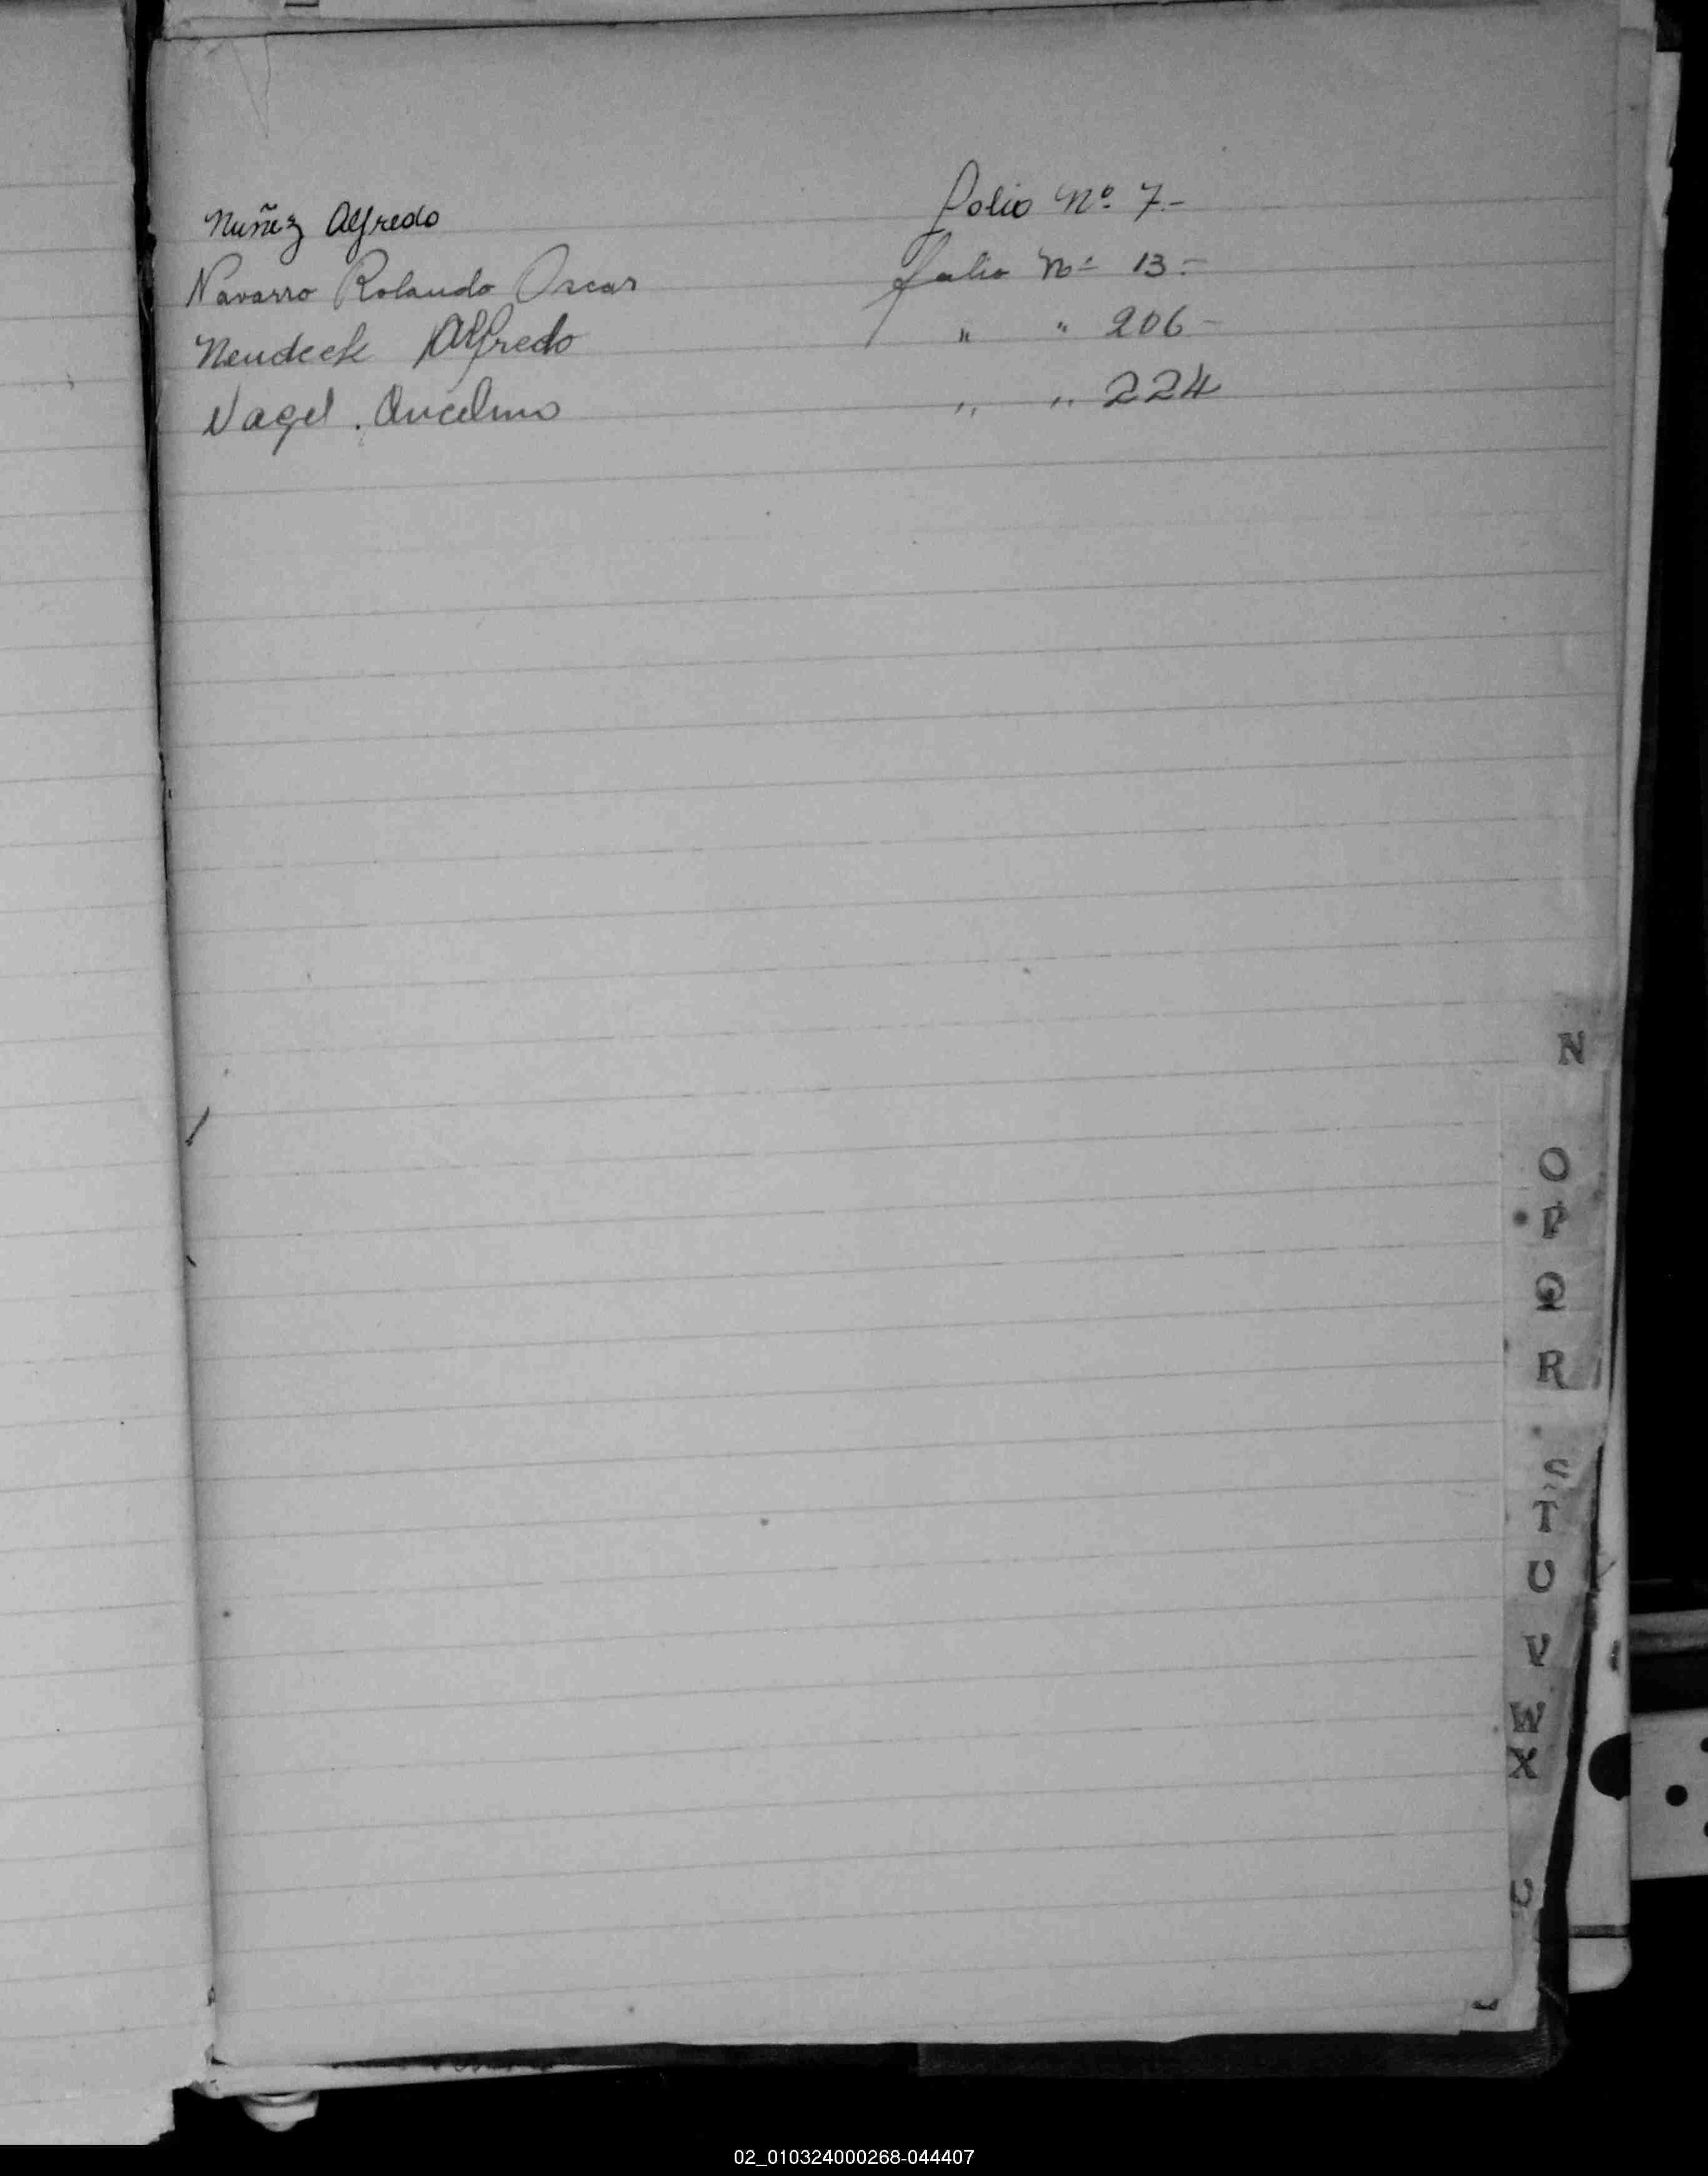 Nuñez Alfredo folio Nº 7.-
Navarro Rolando Oscar folio Nº 13.-
Neudeck Alfredo " " 206-
Nagel. Ancelmo " " 224
N
O
P
Q
R
S
T
U
V
W
X
02_010324000268-044407